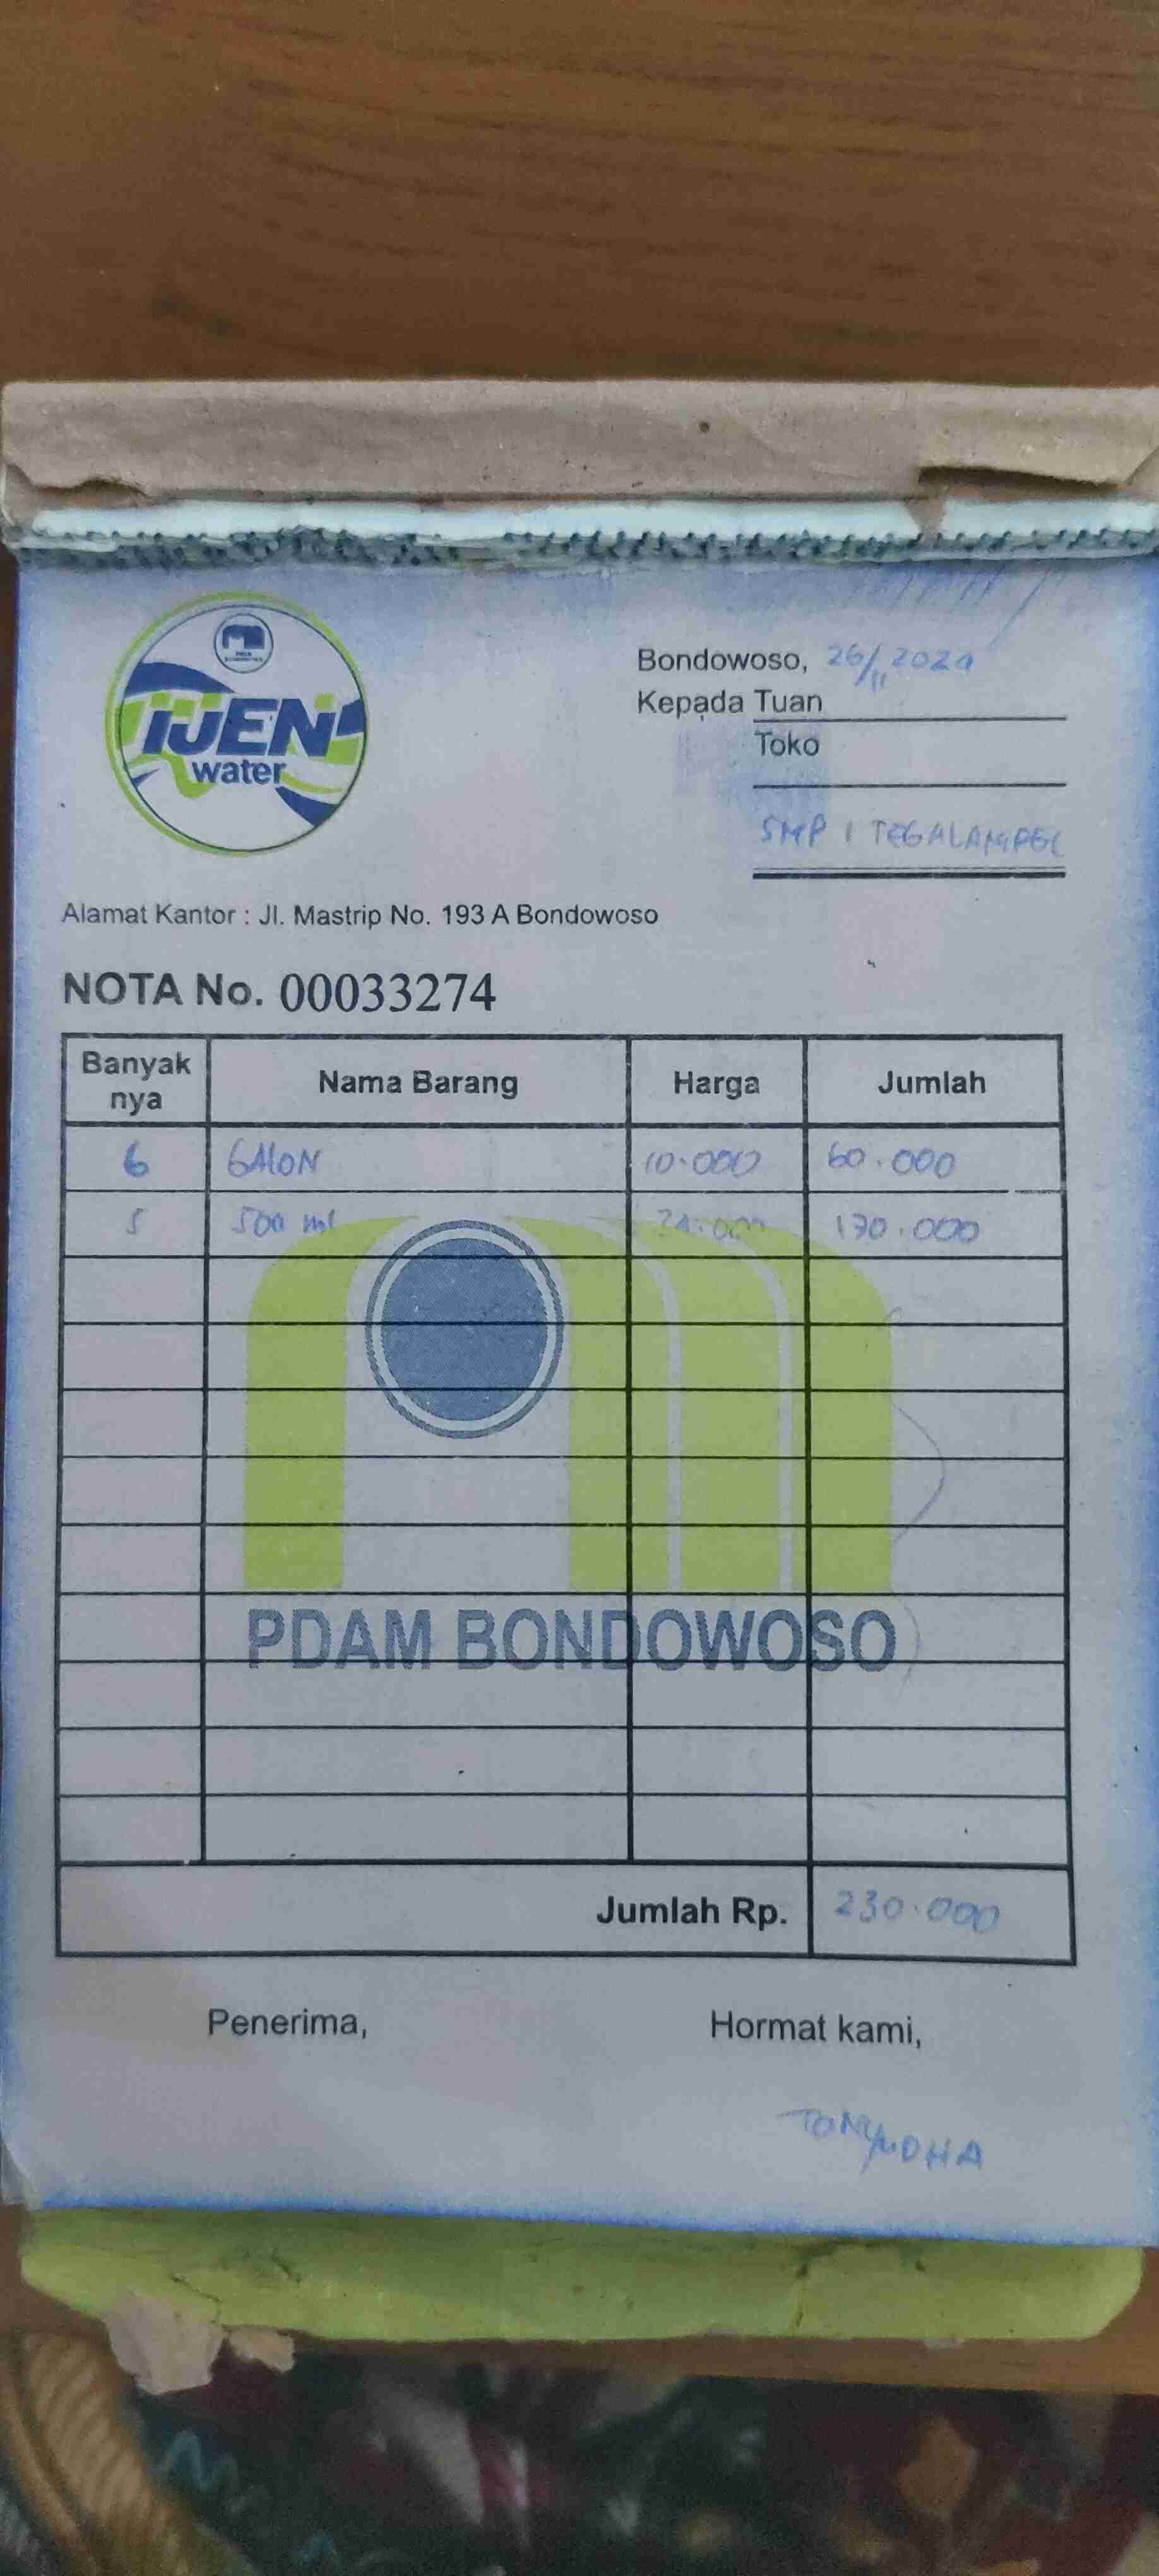 IJEN
water
Bondowoso, 26/11 2024
Kepada Tuan
Toko
SMP 1 TEGALAMPEL
Alamat Kantor : Jl. Mastrip No. 193 A Bondowoso
NOTA No. 00033274
Banyak nya Nama Barang Harga Jumlah
6 GALON 10.000 60.000
5 500 ml 34.000 170.000
PDAM BONDOWOSO
Jumlah Rp. 230.000
Penerima, Hormat kami,